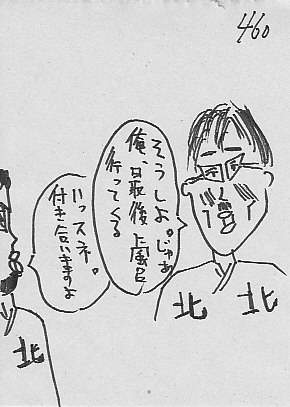 460
そうしよ。じゃあ
俺、最後に風呂
行ってくる
ハッスネ。
付き合いきますよ
北
北
北